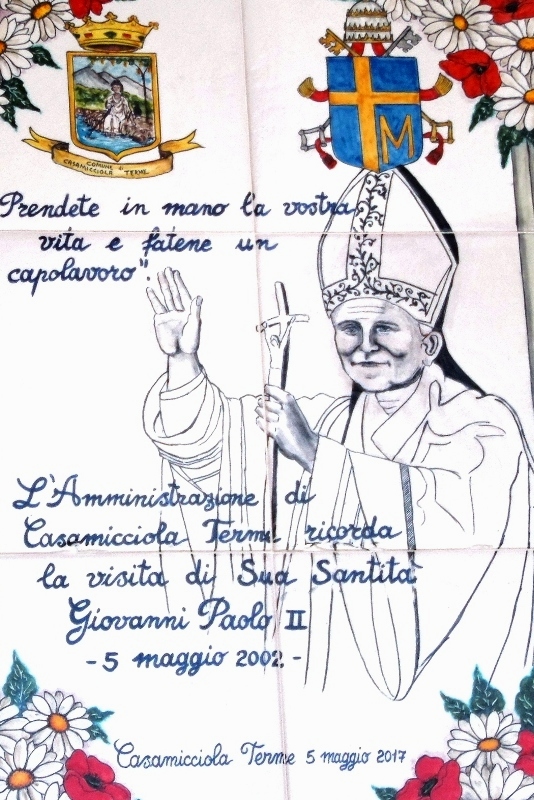 COMUNE di
CASAMICCIOLA TERME
M
Prendete in mano la vostra
vita e fatene un
capolavoro".
L'Amministrazione di
Casamicciola Terme ricorda
la visita di Sua Santità
Giovanni Paolo II
- 5 maggio 2002. -
Casamicciola Terme 5 maggio 2017